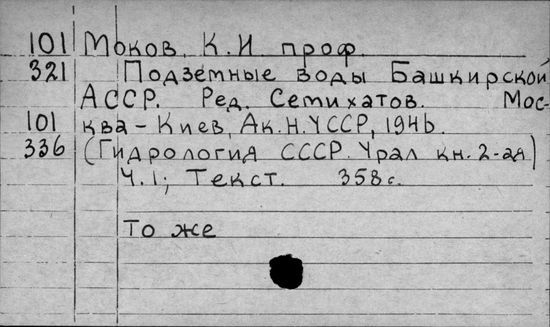 101 Моков, К.И проф.
321 Подземные воды Башкирской
АССР. Ред. Семихатов. Мос-
101 ква - Киев, Ак.Н.УССР, 1946.
336 (Гидрология СССР. Урал кн. 2-ая)
Ч.1; Текст. 358с.
То же